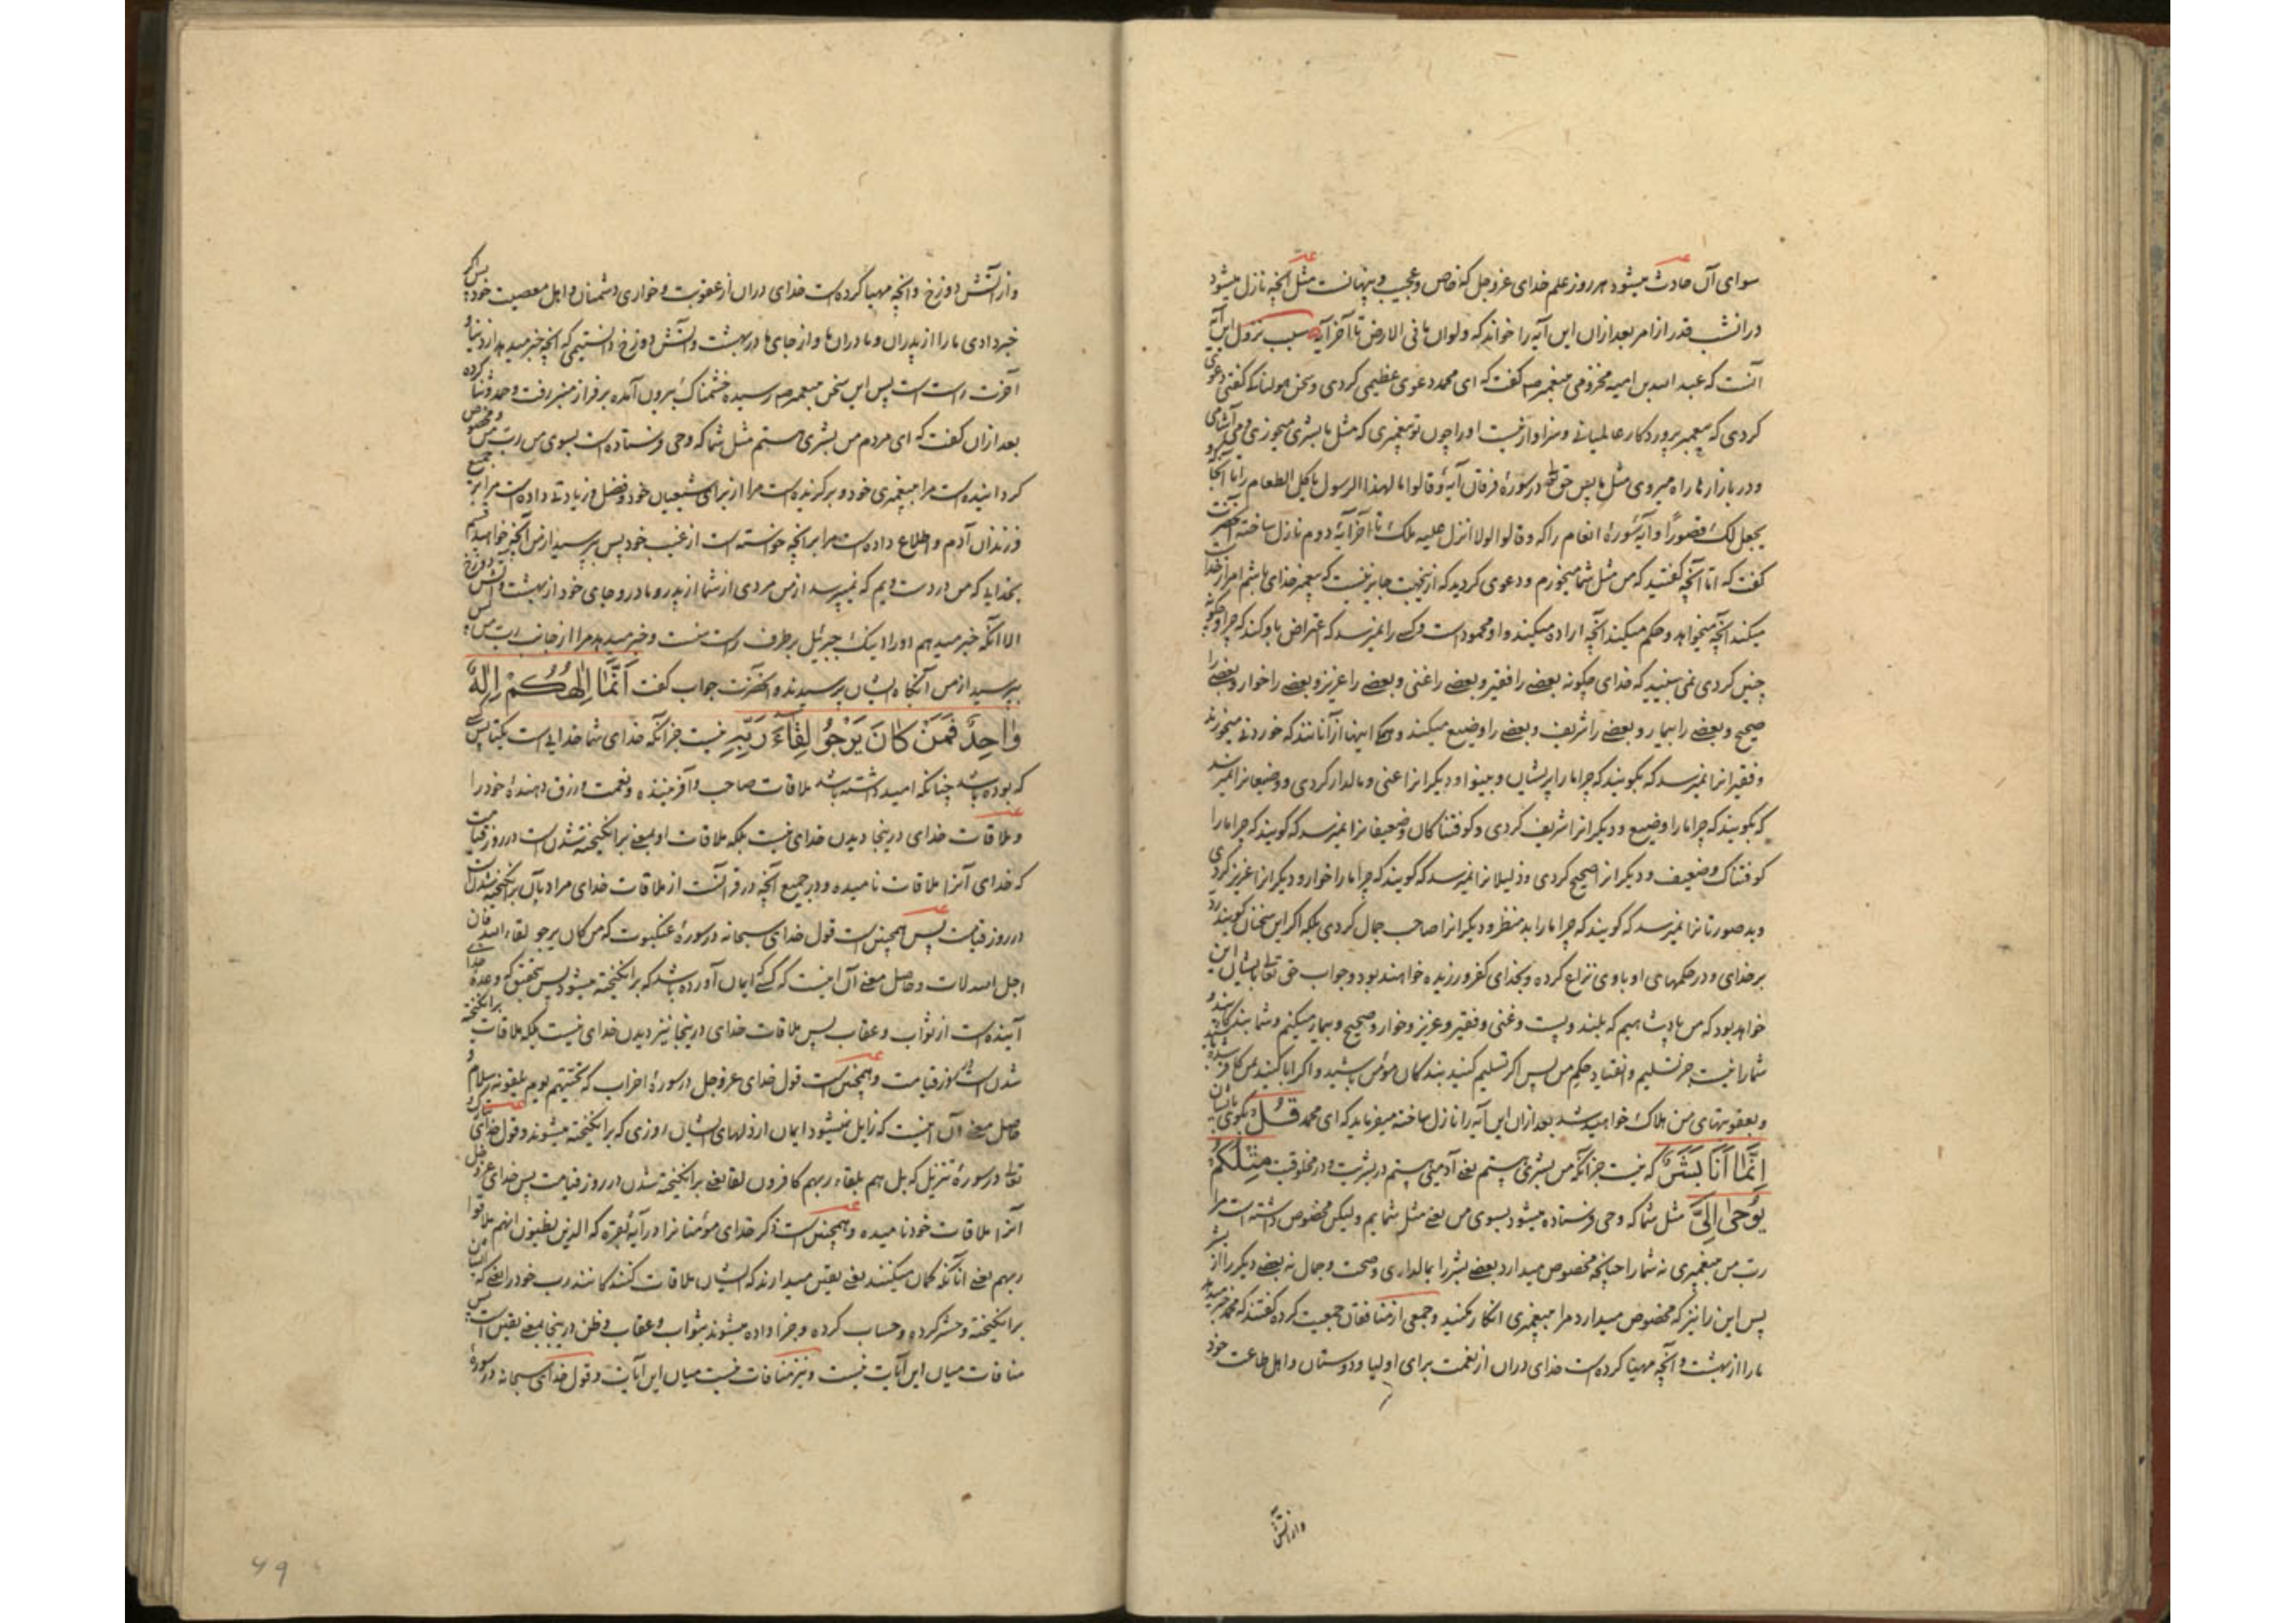 سوای آن حادث میشود هر روز علم خدای عزوجل که خاص و عجیب و پنهانست مثل آنچه نازل میشود
در انشب قدر از امر بعد ازان این آیه را خواند که ولوان ما فی الارض تا آخر آیه سبب نزول این آیه
آنست که عبد الله بن امیه مخزومی پیغمبر صم گفت که ای محمد دعوی عظیمی کردی و سخن هولناک گفتی دعوی
کردی که پیغمبر پروردگار عالمیانی و سزاوار نیست او را چون تو پیغمبری که مثل ما بشری میخوری و می آشامی
و در بازارها راه میروی مثل ما پس حق تع در سورهٔ فرقان آیهٔ وقالوا ما لهذا الرسول یاکل الطعام را با آنجا
یجعل لک قصورًا و آیهٔ سورهٔ انعام را که وقالوا لولا انزل علیه ملک تا آخر آیهٔ دوم نازل ساخته آنحضرت
گفت که اما آنچه گفتید که من مثل شما میخورم و دعوی کردید که ازینجهت جایز نیست که پیغمبر خدای باشم امر از خداست
میکند آنچه میخواهد و حکم میکند آنچه اراده میکند و او محمود است و کسی را نمیرسد که اعتراض باو کند که چرا و چگونه
چنین کردی نمی بینید که خدای چگونه بعضی را فقیر و بعضی را غنی و بعضی را عزیز و بعضی را خوار و بعضی را
صحیح و بعضی را بیمار و بعضی را شریف و بعضی را وضیع میکند و همه اینها از آنانند که خوردنی میخورند
و فقیرانرا نمیرسد که بگویند که چرا ما را پریشان و بینوا و دیگرانرا غنی و مالدار کردی و وضیعانرا نمیرسد
که بگویند که چرا ما را وضیع و دیگرانرا شریف کردی و کوفتناکان و ضعیفانرا نمیرسد که گویند که چرا ما را
کوفتناک و ضعیف و دیگرانرا صحیح کردی و ذلیلانرا نمیرسد که گویند که چرا ما را خوار و دیگرانرا عزیز کردی
و بد صورتانرا نمیرسد که گویند که چرا ما را بد منظر و دیگرانرا صاحب جمال کردی بلکه اگر این سخنان گویند رد
بر خدای و در حکمهای او باوی نزاع کرده و بخدای کفر ورزیده خواهند بود و جواب حق تعالی بایشان این
خواهد بود که من پادشاهیم که بلند و پست و غنی و فقیر و عزیز و خوار و صحیح و بیمار میکنم و شما بندگانید
شما را نیست جز تسلیم و انقیاد حکم من پس اگر تسلیم کنید بندگان مؤمن باشید و اگر ابا کنید بمن کافر شده
و بعقوبتهای من هلاک خواهید شد بعد ازان این آیه را نازل ساخته میفرماید که ای محمد قُلْ بگوی بایشان
اِنَّمٰا اَنَا بَشَرٌ که نیست جز آنکه من بشری هستم یعنی آدمی هستم در بشریت و در مخلوقیت مِثْلُکُمْ
یُوحیٰ اِلَیَّ مثل شما که وحی فرستاده میشود بسوی من یعنی مثل شمایم ولیکن مخصوص داشته است مرا
رب من پیغمبری نه شما را چنانچه مخصوص میدارد بعضی بشر را بمالداری و صحت و جمال نه بعضی دیگر را از بشر
پس این را نیز که مخصوص میدارد مرا بپیغمبری انکار مکنید و جمعی از منافقان جمعیت کرده گفتند که محمد خبر میدهد
ما را از بهشت و آنچه مهیا کرده است خدای دران از نعمت برای اولیا و دوستان و اهل طاعت خود
و از آتش
و از آتش دوزخ و آنچه مهیا کرده است خدای دران از عقوبت و خواری دشمنان و اهل معصیت خود پس اگر
خبر دادی ما را از پدران و مادران ما و از جای ما در بهشت و آتش دوزخ دانستیمی که آنچه خبر میدهد از دنیا و
آخرت راست است پس این سخن پیغمبر صم رسیده خشمناک بیرون آمده بر فراز منبر رفت و حمد و ثنا کرده
بعد ازان گفت که ای مردم من بشری هستم مثل شما که وحی فرستاده است بسوی من رب من و مخصوص
گردانیده است مرا بپیغمبری خود و برگزیده است مرا از برای شیعیان خود و فضل و زیادتی داده است مرا بر جمیع
فرزندان آدم و اطلاع داده است مرا بر آنچه خواسته است از غیب خود پس بپرسید از من آنچه خواهید قسم
بخدایی که من در دست ویم که نمیپرسد از من مردی از شما از پدر و مادر و جای خود از بهشت و آتش دوزخ
الا آنکه خبر میدهم او را اینک جبرئیل بر طرف راست منست و خبر میدهد مرا از جانب رب من پس
بپرسید از من آنگاه ایشان پرسیدند و آنحضرت جواب گفت اَنَّمٰا اِلٰهُکُمْ اِلٰهٌ
وٰاحِدٌ فَمَنْ کٰانَ یَرْجُوا لِقٰآءَ رَبِّهِ نیست جز آنکه خدای شما خدایی است یکتا پس
که بوده باشد چنانکه امید داشته باشد ملاقات صاحب و آفریننده و نعمت و رزق دهندهٔ خود را
و ملاقات خدای درینجا دیدن خدای نیست بلکه ملاقات او بمعنی برانگیخته شدن است در روز قیامت
که خدای آنرا ملاقات نامیده و در جمیع آنچه در قرآنست از ملاقات خدای مراد بآن برانگیخته شدن است
در روز قیامت پس همچنین است قول خدای سبحانه در سورهٔ عنکبوت که من کان یرجو لقاء الله فان
اجل الله لات و حاصل معنی آن اینست که کسی که ایمان آورده باشد که برانگیخته میشود پس بتحقیق که وعدهٔ خدای
آینده است از ثواب و عقاب پس ملاقات خدای درینجا نیز دیدن خدای نیست بلکه ملاقات برانگیخته
شدن است در روز قیامت و همچنین است قول خدای عزوجل در سورهٔ احزاب که تحیتهم یوم یلقونه سلام و
حاصل معنی آن اینست که زایل نمیشود ایمان از دلهای ایشان روزی که برانگیخته میشوند و قول خدای
تعالی در سورهٔ تنزیل که بل هم بلقاء ربهم کافرون لقا یعنی برانگیخته شدن در روز قیامت پس خدای عزوجل
آنرا ملاقات خود نامیده و همچنین است ذکر خدای مؤمنانرا در آیهٔ بقره که الذین یظنون انهم ملاقوا
ربهم یعنی آنانکه گمان میکنند یعنی یقین میدارند که ایشان ملاقات کنندگانند رب خود را یعنی که
برانگیخته و حشر کرده و حساب کرده و جزا داده میشوند بثواب و عقاب و ظن درینجا بمعنی یقین است پس
منافات میان این آیات نیست و نیز منافات نیست میان این آیات و قول خدای سبحانه در سورهٔ
49